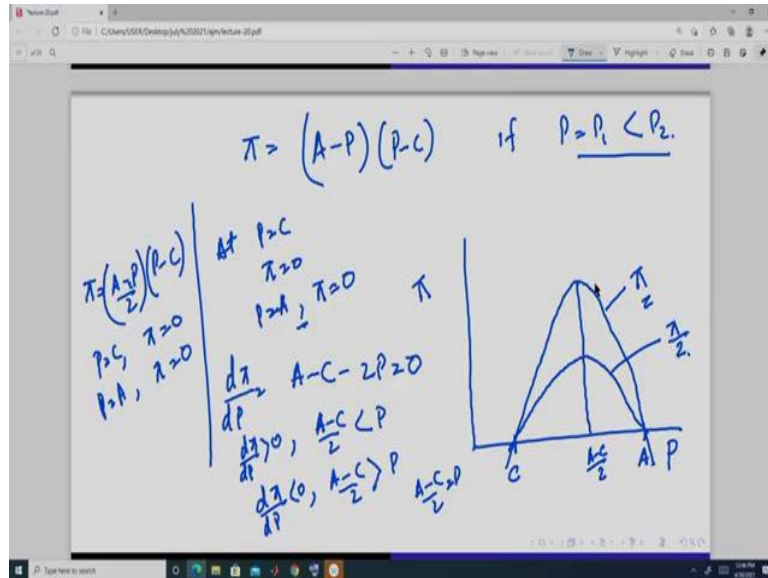 lecture-20.pdf
File | C:/Users/USER/Desktop/july%202021/ajm/lecture-20.pdf
Page view
Draw
Highlight
Erase
π = (A-P)(P-C) if P=P₁ < P₂.
π=(A-P/2)(P-C)
P=C, π=0
P=A, π=0
At P=C
π=0
P=A, π=0
dπ/dP = A-C-2P=0
dπ/dP >0, A-C/2 < P
dπ/dP <0, A-C/2 > P
A-C/2 = P
π
π =
π/2.
C
A-C/2
A
P
Type here to search